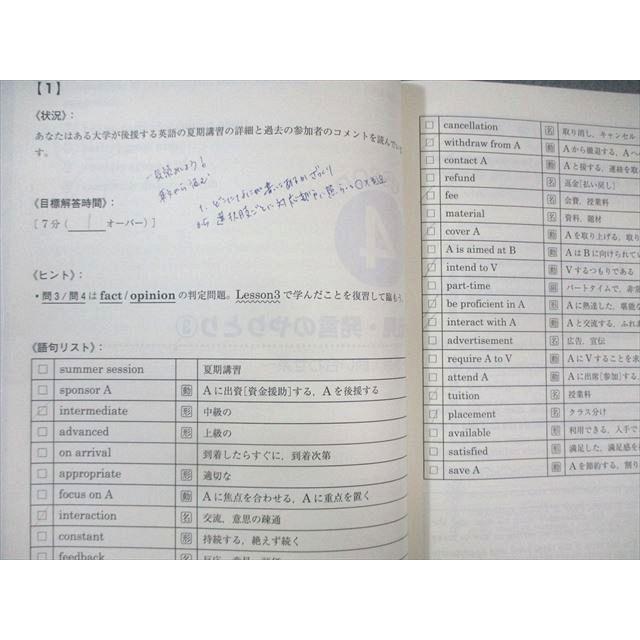 【1】
《状況》:
あなたはある大学が後援する英語の夏期講習の詳細と過去の参加者のコメントを読んでい
す。
《目標解答時間》:
[ 7分 ( 1 オーバー) ]
《ヒント》:
・問3/問4は fact/opinion の判定問題。Lesson3で学んだことを復習して臨もう。
《語句リスト》:
□ summer session 夏期講習
□ sponsor A 動 Aに出資[資金援助]する，Aを後援する
□ intermediate 形 中級の
□ advanced 形 上級の
□ on arrival 到着したらすぐに，到着次第
□ appropriate 形 適切な
□ focus on A 動 Aに焦点を合わせる，Aに重点を置く
□ interaction 名 交流，意思の疎通
□ constant 形 持続する，絶えず続く
□ feedback
□ cancellation 名 取り消し，キャンセル
□ withdraw from A 動 Aから撤退する，Aへ
□ contact A 動 Aと接する，連絡を取
□ refund 名 返金[払い戻し]
□ fee 名 会費，授業料
□ material 名 資料，題材
□ cover A 動 Aを取り上げる，取り
□ A is aimed at B AはBに向けられてい
□ intend to V 動 Vするつもりである
□ part-time 形 パートタイムで，非常
□ be proficient in A 形 Aに熟達した，堪能な
□ interact with A 動 Aと交流する，ふれ
□ advertisement 名 広告，宣伝
□ require A to V 動 AにVすることを求
□ attend A 動 Aに出席[参加]する，
□ tuition 名 授業料
□ placement 名 クラス分け
□ available 形 利用できる，入手で
□ satisfied 形 満足した，満足感を
□ save A 動 Aを節約する，割り